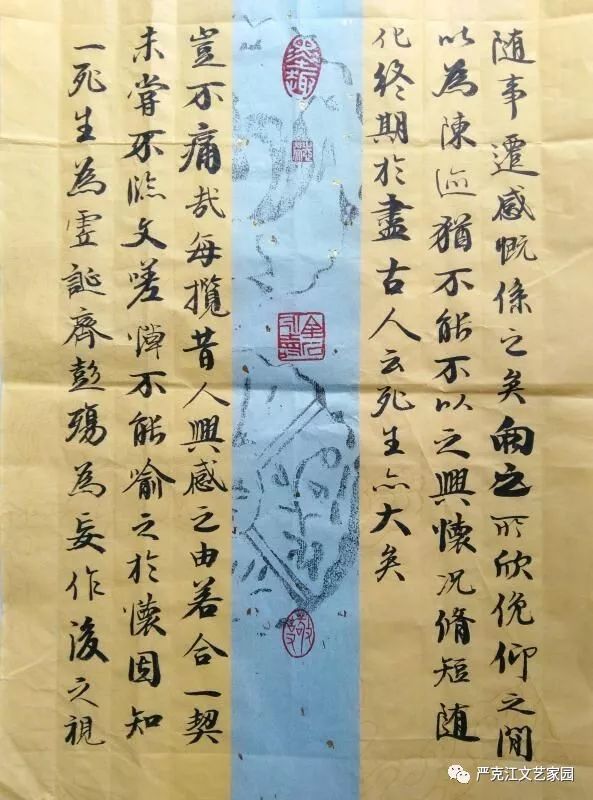 随事遷感慨係之矣向之所欣俛仰之閒
以為陳迹猶不能不以之興懷況脩短随
化終期於盡古人云死生亦大矣
豈不痛哉每攬昔人興感之由若合一契
未嘗不臨文嗟悼不能喻之於懷固知
一死生為虛誕齊彭殤為妄作後之視
严克江文艺家园